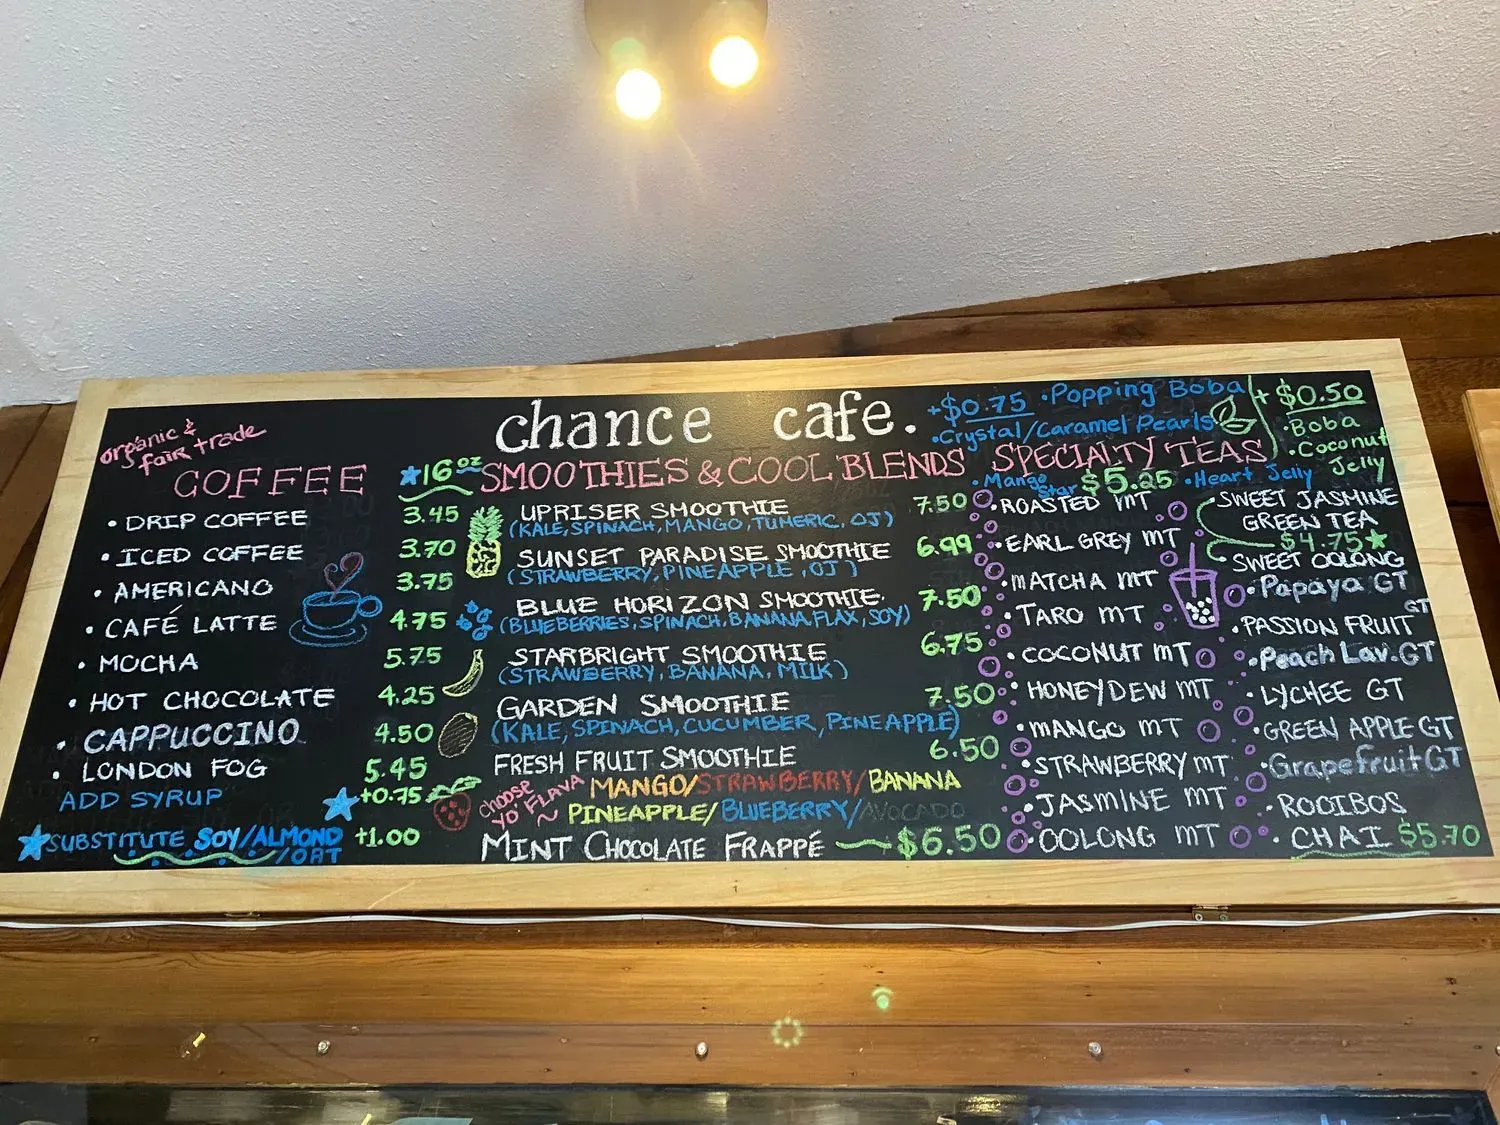 chance cafe.
organic &
fair trade
COFFEE
★16oz
• DRIP COFFEE 3.45
• ICED COFFEE 3.70
• AMERICANO 3.75
• CAFÉ LATTE 4.75
• MOCHA 5.75
• HOT CHOCOLATE 4.25
• CAPPUCCINO 4.50
• LONDON FOG 5.45
ADD SYRUP ★+0.75
★SUBSTITUTE SOY/ALMOND +1.00
/OAT
SMOOTHIES & COOL BLENDS
UPRISER SMOOTHIE 7.50
(KALE, SPINACH, MANGO, TUMERIC, OJ)
SUNSET PARADISE SMOOTHIE 6.99
(STRAWBERRY, PINEAPPLE, OJ)
BLUE HORIZON SMOOTHIE. 7.50
(BLUEBERRIES, SPINACH, BANANA, FLAX, SOY)
STARBRIGHT SMOOTHIE 6.75
(STRAWBERRY, BANANA, MILK)
GARDEN SMOOTHIE 7.50
(KALE, SPINACH, CUCUMBER, PINEAPPLE)
FRESH FRUIT SMOOTHIE 6.50
choose
yo' FLAVA
~
MANGO/STRAWBERRY/BANANA
PINEAPPLE/BLUEBERRY/AVOCADO
MINT CHOCOLATE FRAPPÉ $6.50
+$0.75 • Popping Boba
• Crystal/Caramel Pearls
SPECIALTY TEAS
• Mango
Star
$5.25
• Heart Jelly
+ $0.50
• Boba
• Coconut
Jelly
• ROASTED MT
• EARL GREY MT
• MATCHA MT
• TARO MT
• COCONUT MT
• HONEYDEW MT
• MANGO MT
• STRAWBERRY MT
• JASMINE MT
• OOLONG MT
SWEET JASMINE
GREEN TEA
$4.75★
SWEET OOLONG
• Papaya GT
• PASSION FRUIT GT
• Peach Lav. GT
• LYCHEE GT
• GREEN APPLE GT
• Grapefruit GT
• ROOIBOS
• CHAI $5.70